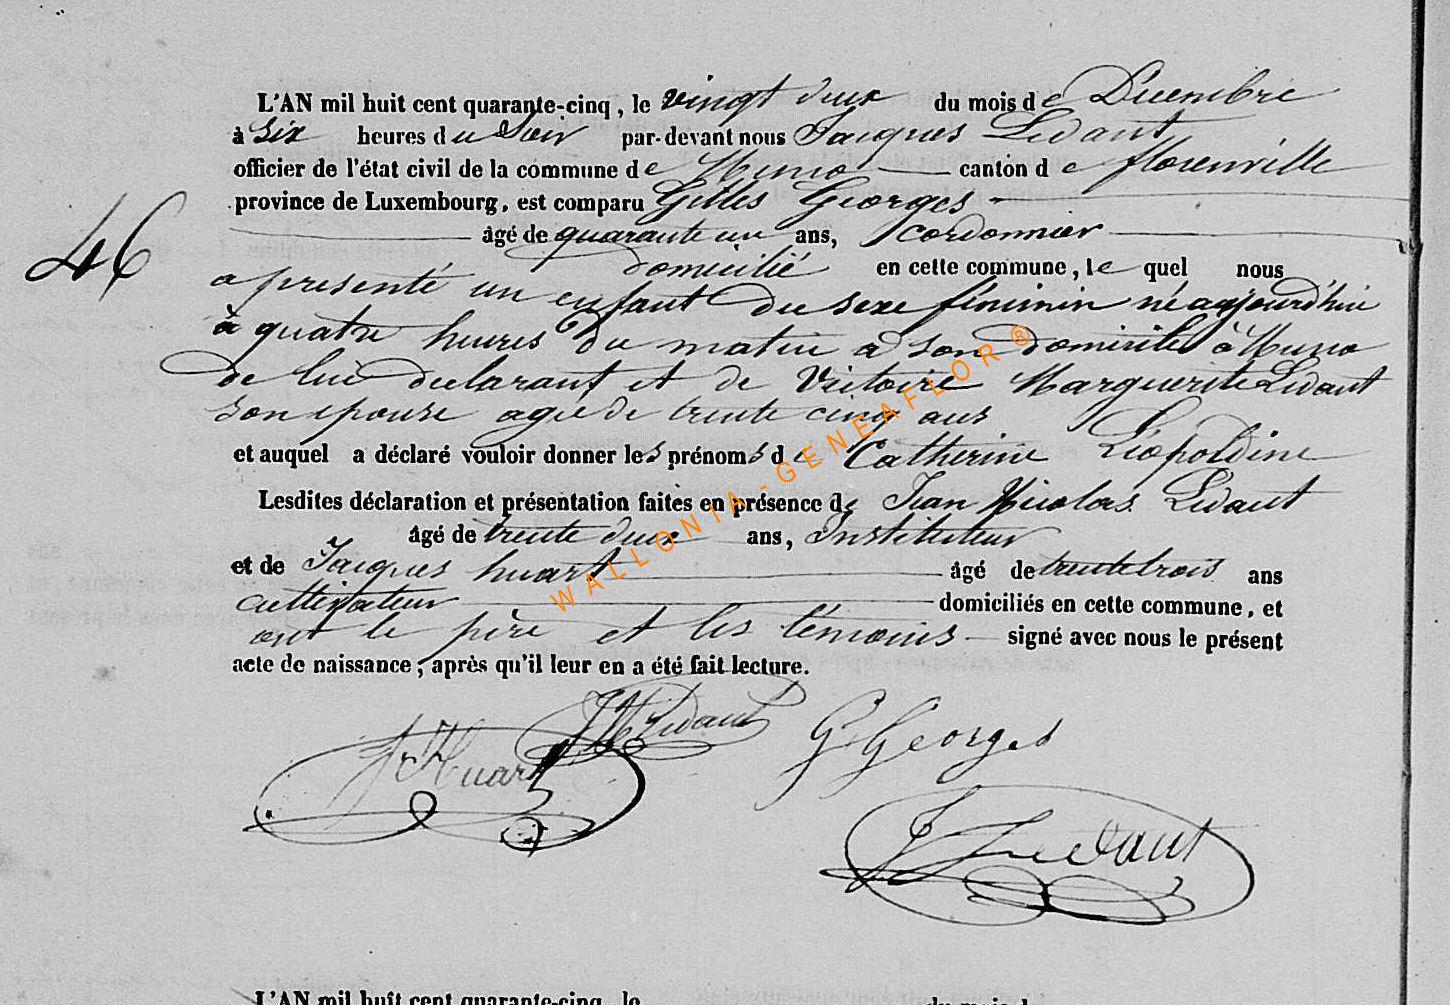 L'AN mil huit cent quarante-cinq, le vingt deux du mois de Decembre
à Six heures du Soir par-devant nous Jacques Ledant
officier de l'état civil de la commune de Muno canton de florenville
province de Luxembourg, est comparu Gilles Georges
âgé de quarante un ans, Cordonnier
domicilié en cette commune, le quel nous
46
a présenté un enfant du sexe féminin né aujourd'hui
à quatre heures du matin a son domicile à Muno
de lui declarant et de Victoire Marguerite Ledant
son epouse agée de trente cinq ans
et auquel a déclaré vouloir donner les prénoms de Catherine Léopoldine
Lesdites déclaration et présentation faites en présence de Jean Nicolas Ledant
âgé de trente deux ans, Instituteur
et de Jacques huart âgé de trente trois ans
cultivateur domiciliés en cette commune, et
ont le père et les témoins signé avec nous le présent
acte de naissance, après qu'il leur en a été fait lecture.
JN Ledant
J Huart
G Georges
J Ledant
L'AN mil huit cent quarante-cinq, le du mois d
WALLONIA-GENEAFLOR®